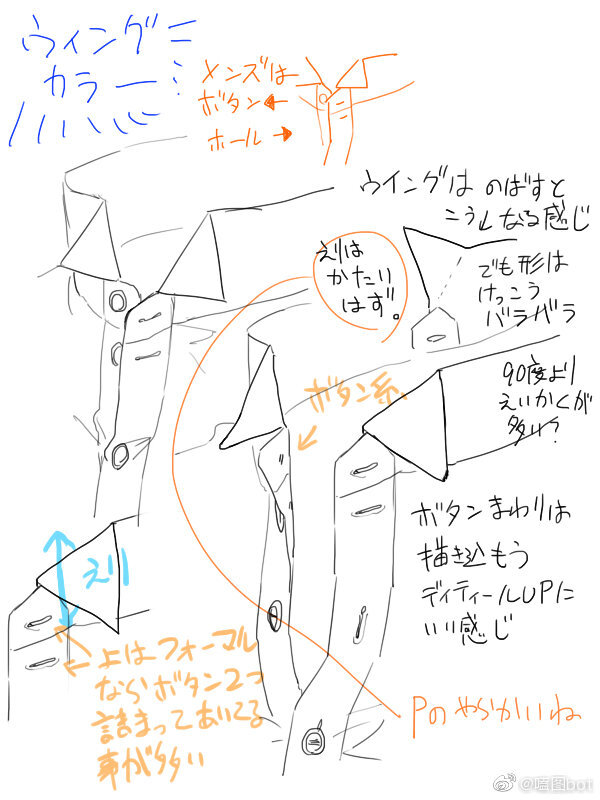 ウィング
カラー…
メンズは
ボタン←
ホール→
ウイングは のばすと
こうなる感じ
えりは
かたい
はず。
でも形は
けっこう
バラバラ
90度より
えいかくが
多い?
ボタン系
ボタンまわりは
描き込もう
ディティールUPに
いい感じ
えり
←上はフォーマル
ならボタン2つ
詰まってあいてる
事が多い
Pのやらかいね
嗑图bot